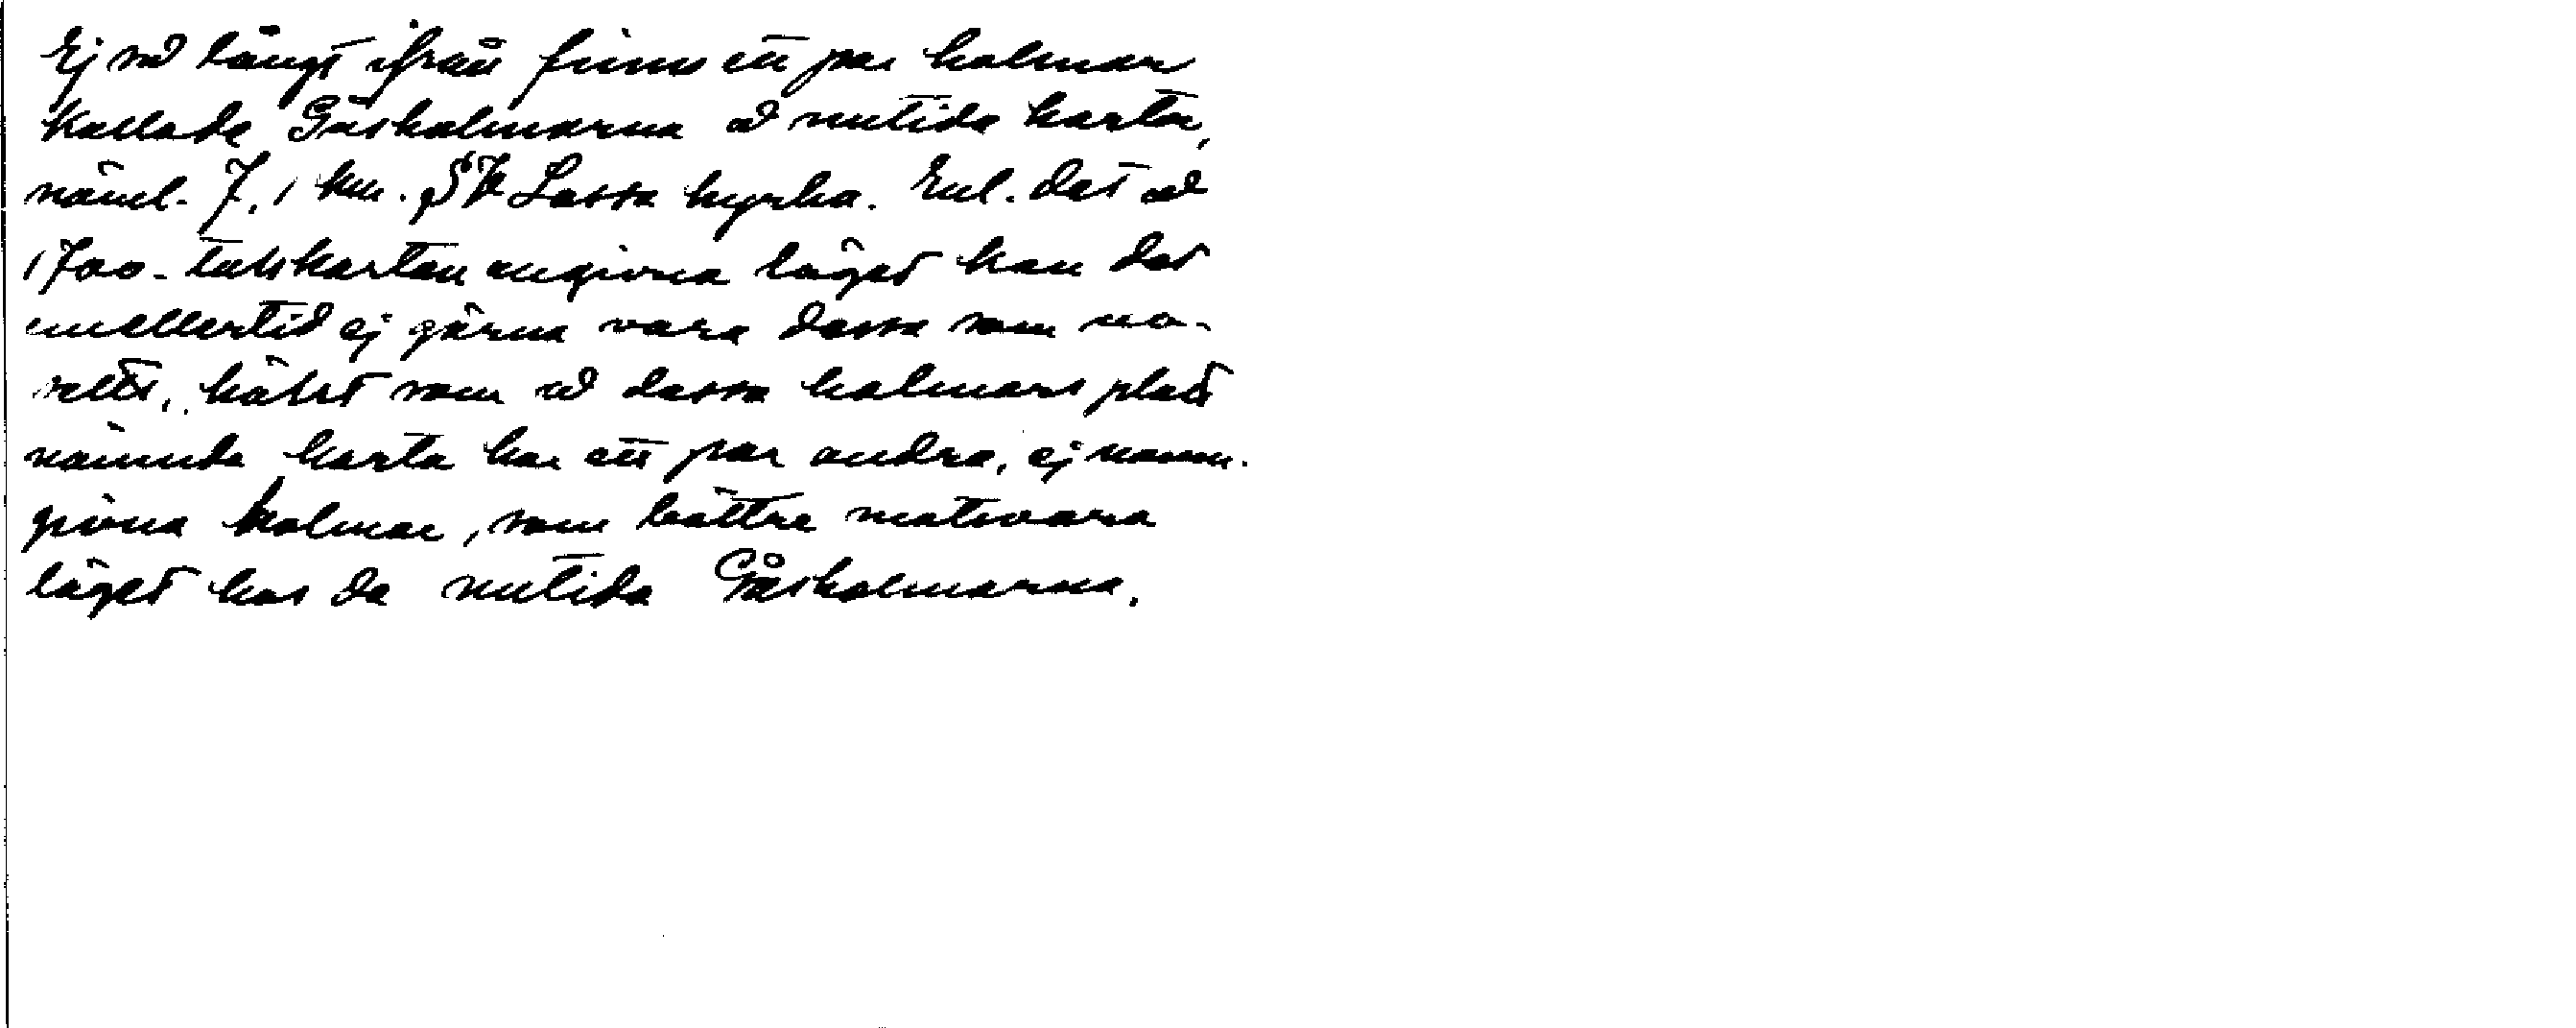 Ej så långt ifrån finns ett par holmar
kallade Gåsholmarna å nutida kartor,
näml. 7,1 km. SV Lassa kyrka. Enl. det å
1700-talskartan angivna läget kan det
emellertid ej gärna vara dessa som av-
setts, hälst som å dessa holmars plats
nämnda karta har ett par andra, ej namn-
givna holmar, som bättre motsvara
läget hos de nutida Gåsholmarna.